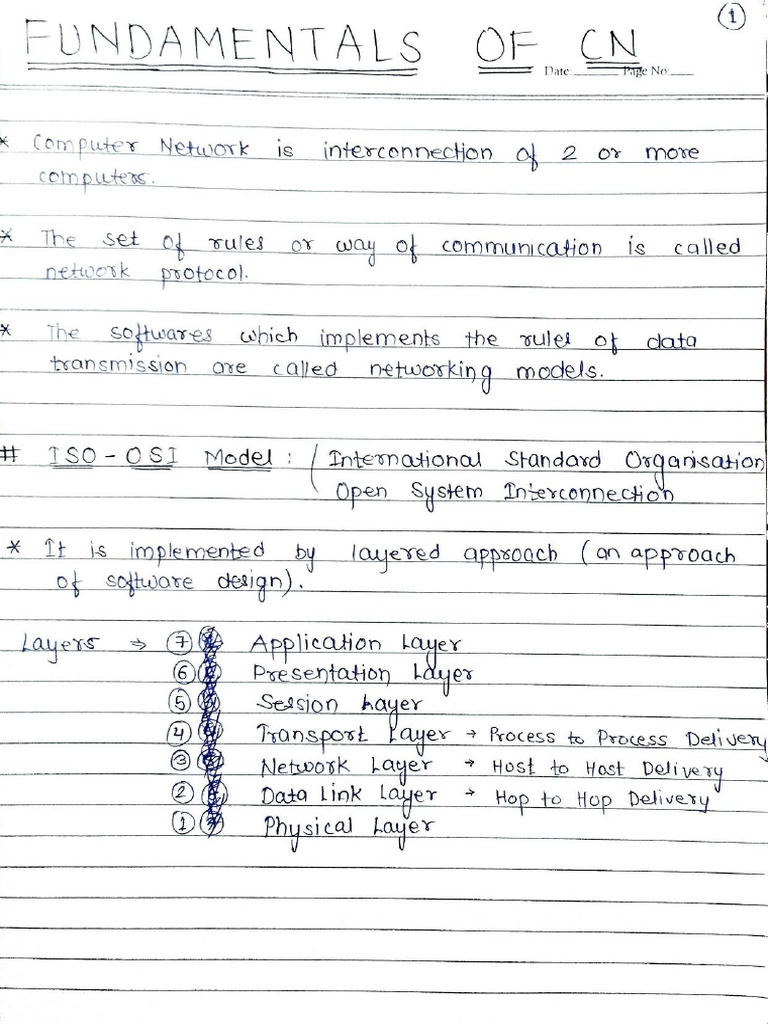 ①
FUNDAMENTALS OF CN
Date: Page No:
* Computer Network is interconnection of 2 or more
computers.
* The set of rules or way of communication is called
network protocol.
* The softwares which implements the rules of data
transmission are called networking models.
# ISO - OSI Model : ( International Standard Organisation
Open System Interconnection
* It is implemented by layered approach (an approach
of software design).
Layers → ⑦ Application Layer
⑥ Presentation Layer
⑤ Session Layer
④ Transport Layer → Process to Process Delivery
③ Network Layer → Host to Host Delivery
② Data Link Layer → Hop to Hop Delivery
① Physical Layer